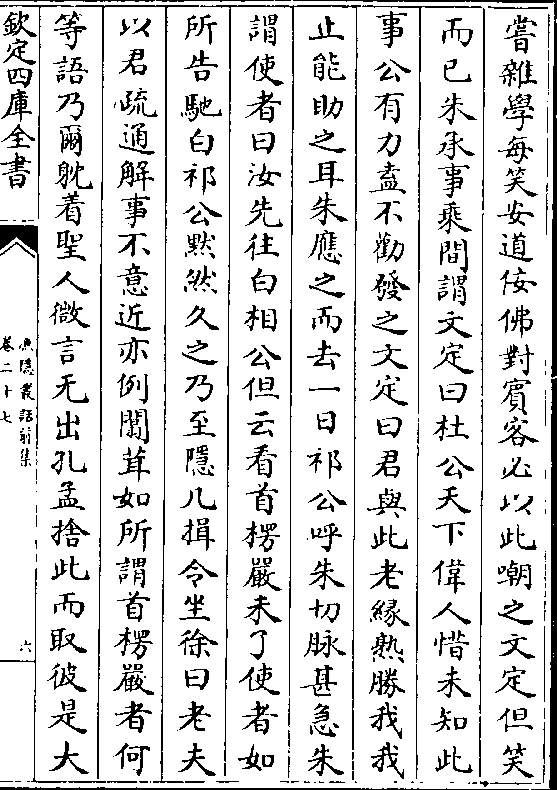 嘗雜學每笑安道佞佛對賓客必以此嘲之文定但笑
而已朱承事乘間謂文定曰杜公天下偉人惜未知此
事公有力盍不勸發之文定曰君與此老緣熟勝我我
止能助之耳朱應之而去一日祁公呼朱切脉甚急朱
謂使者曰汝先往白相公但云看首楞嚴未了使者如
所告馳白祁公黙然久之乃至隱几揖令坐徐曰老夫
以君疏通解事不意近亦例闒茸如所謂首楞嚴者何
等語乃爾躭着聖人微言无出孔孟捨此而取彼是大
欽定四庫全書
漁隱叢話前集
卷二十七
六